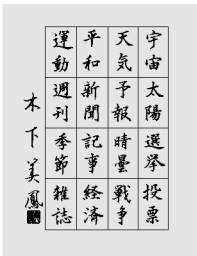 宇宙太陽選挙投票
天気予報晴曇戦争
平和新聞記事経済
運動週刊季節雑誌
木下美鳳